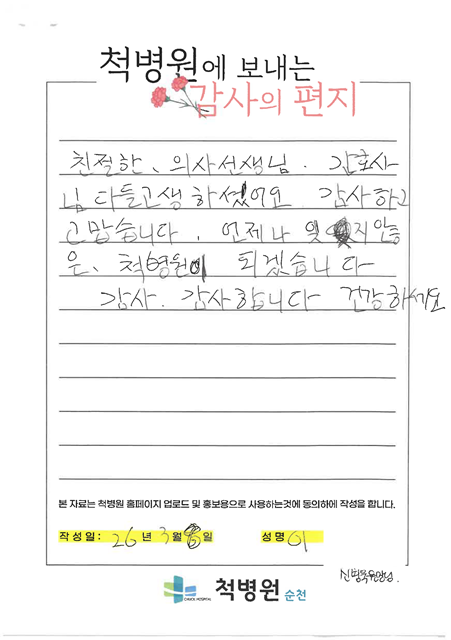 척병원에 보내는
감사의 편지
친절한、의사선생님. 간호사
님 다들고생 하셨어요 감사하고
고맙습니다. 언제나 잊지안
은、척병원이 되겠습니다
감사. 감사합니다 건강하세요
본 자료는 척병원 홈페이지 업로드 및 홍보용으로 사용하는것에 동의하에 작성을 합니다.
작성일: 26년 3월 일 성명 이
CHUCK HOSPITAL 척병원 순천